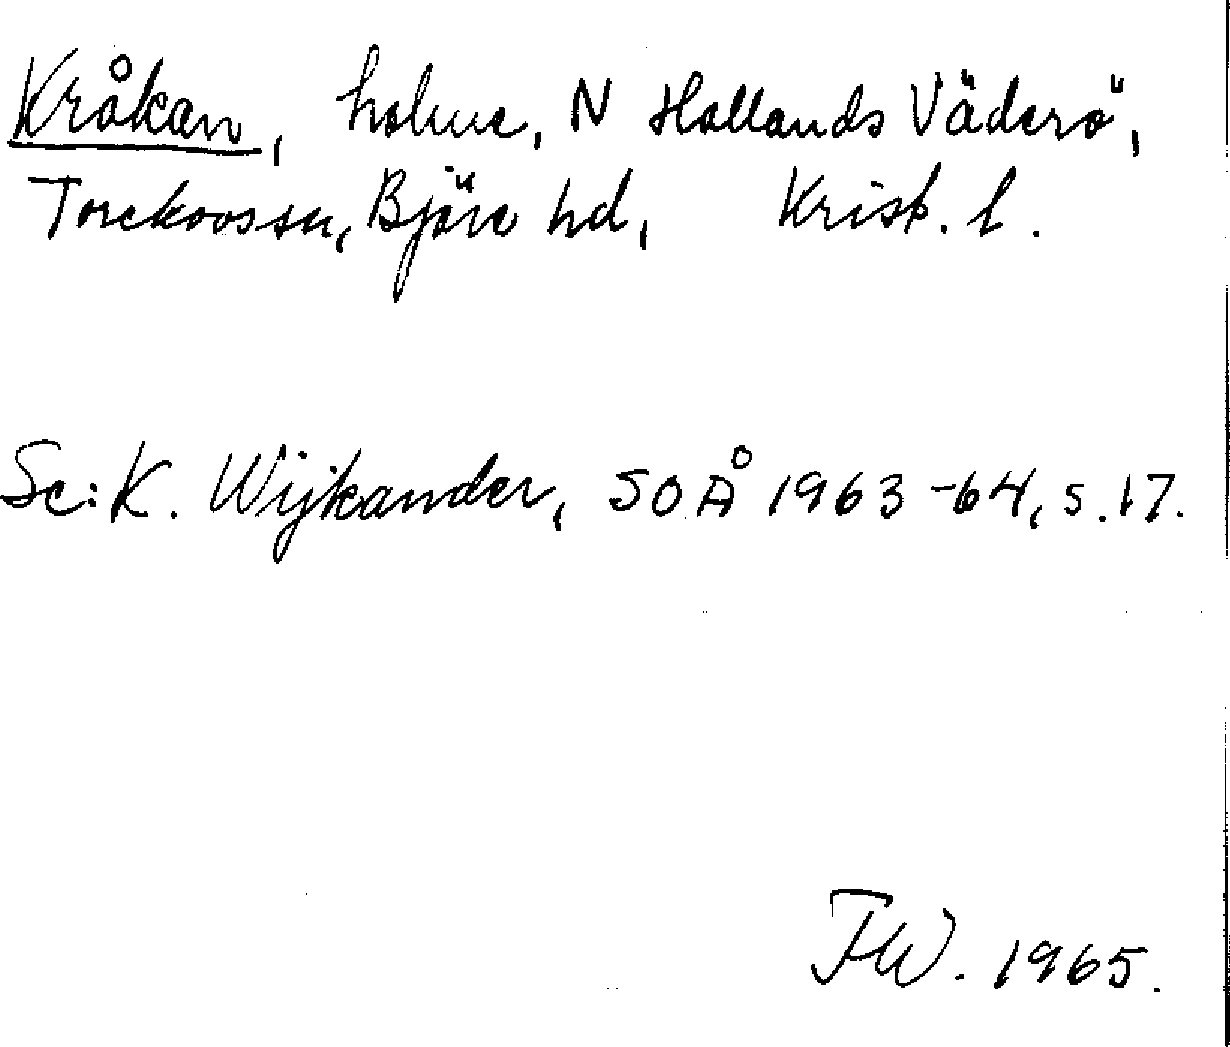 Kråkan, holme, N Hallands Väderö,
Torekovs sn, Bjäre hd, Krist. l.
Se: K. Wijkander, SOÅ 1963-64, s. 17.
FW. 1965.